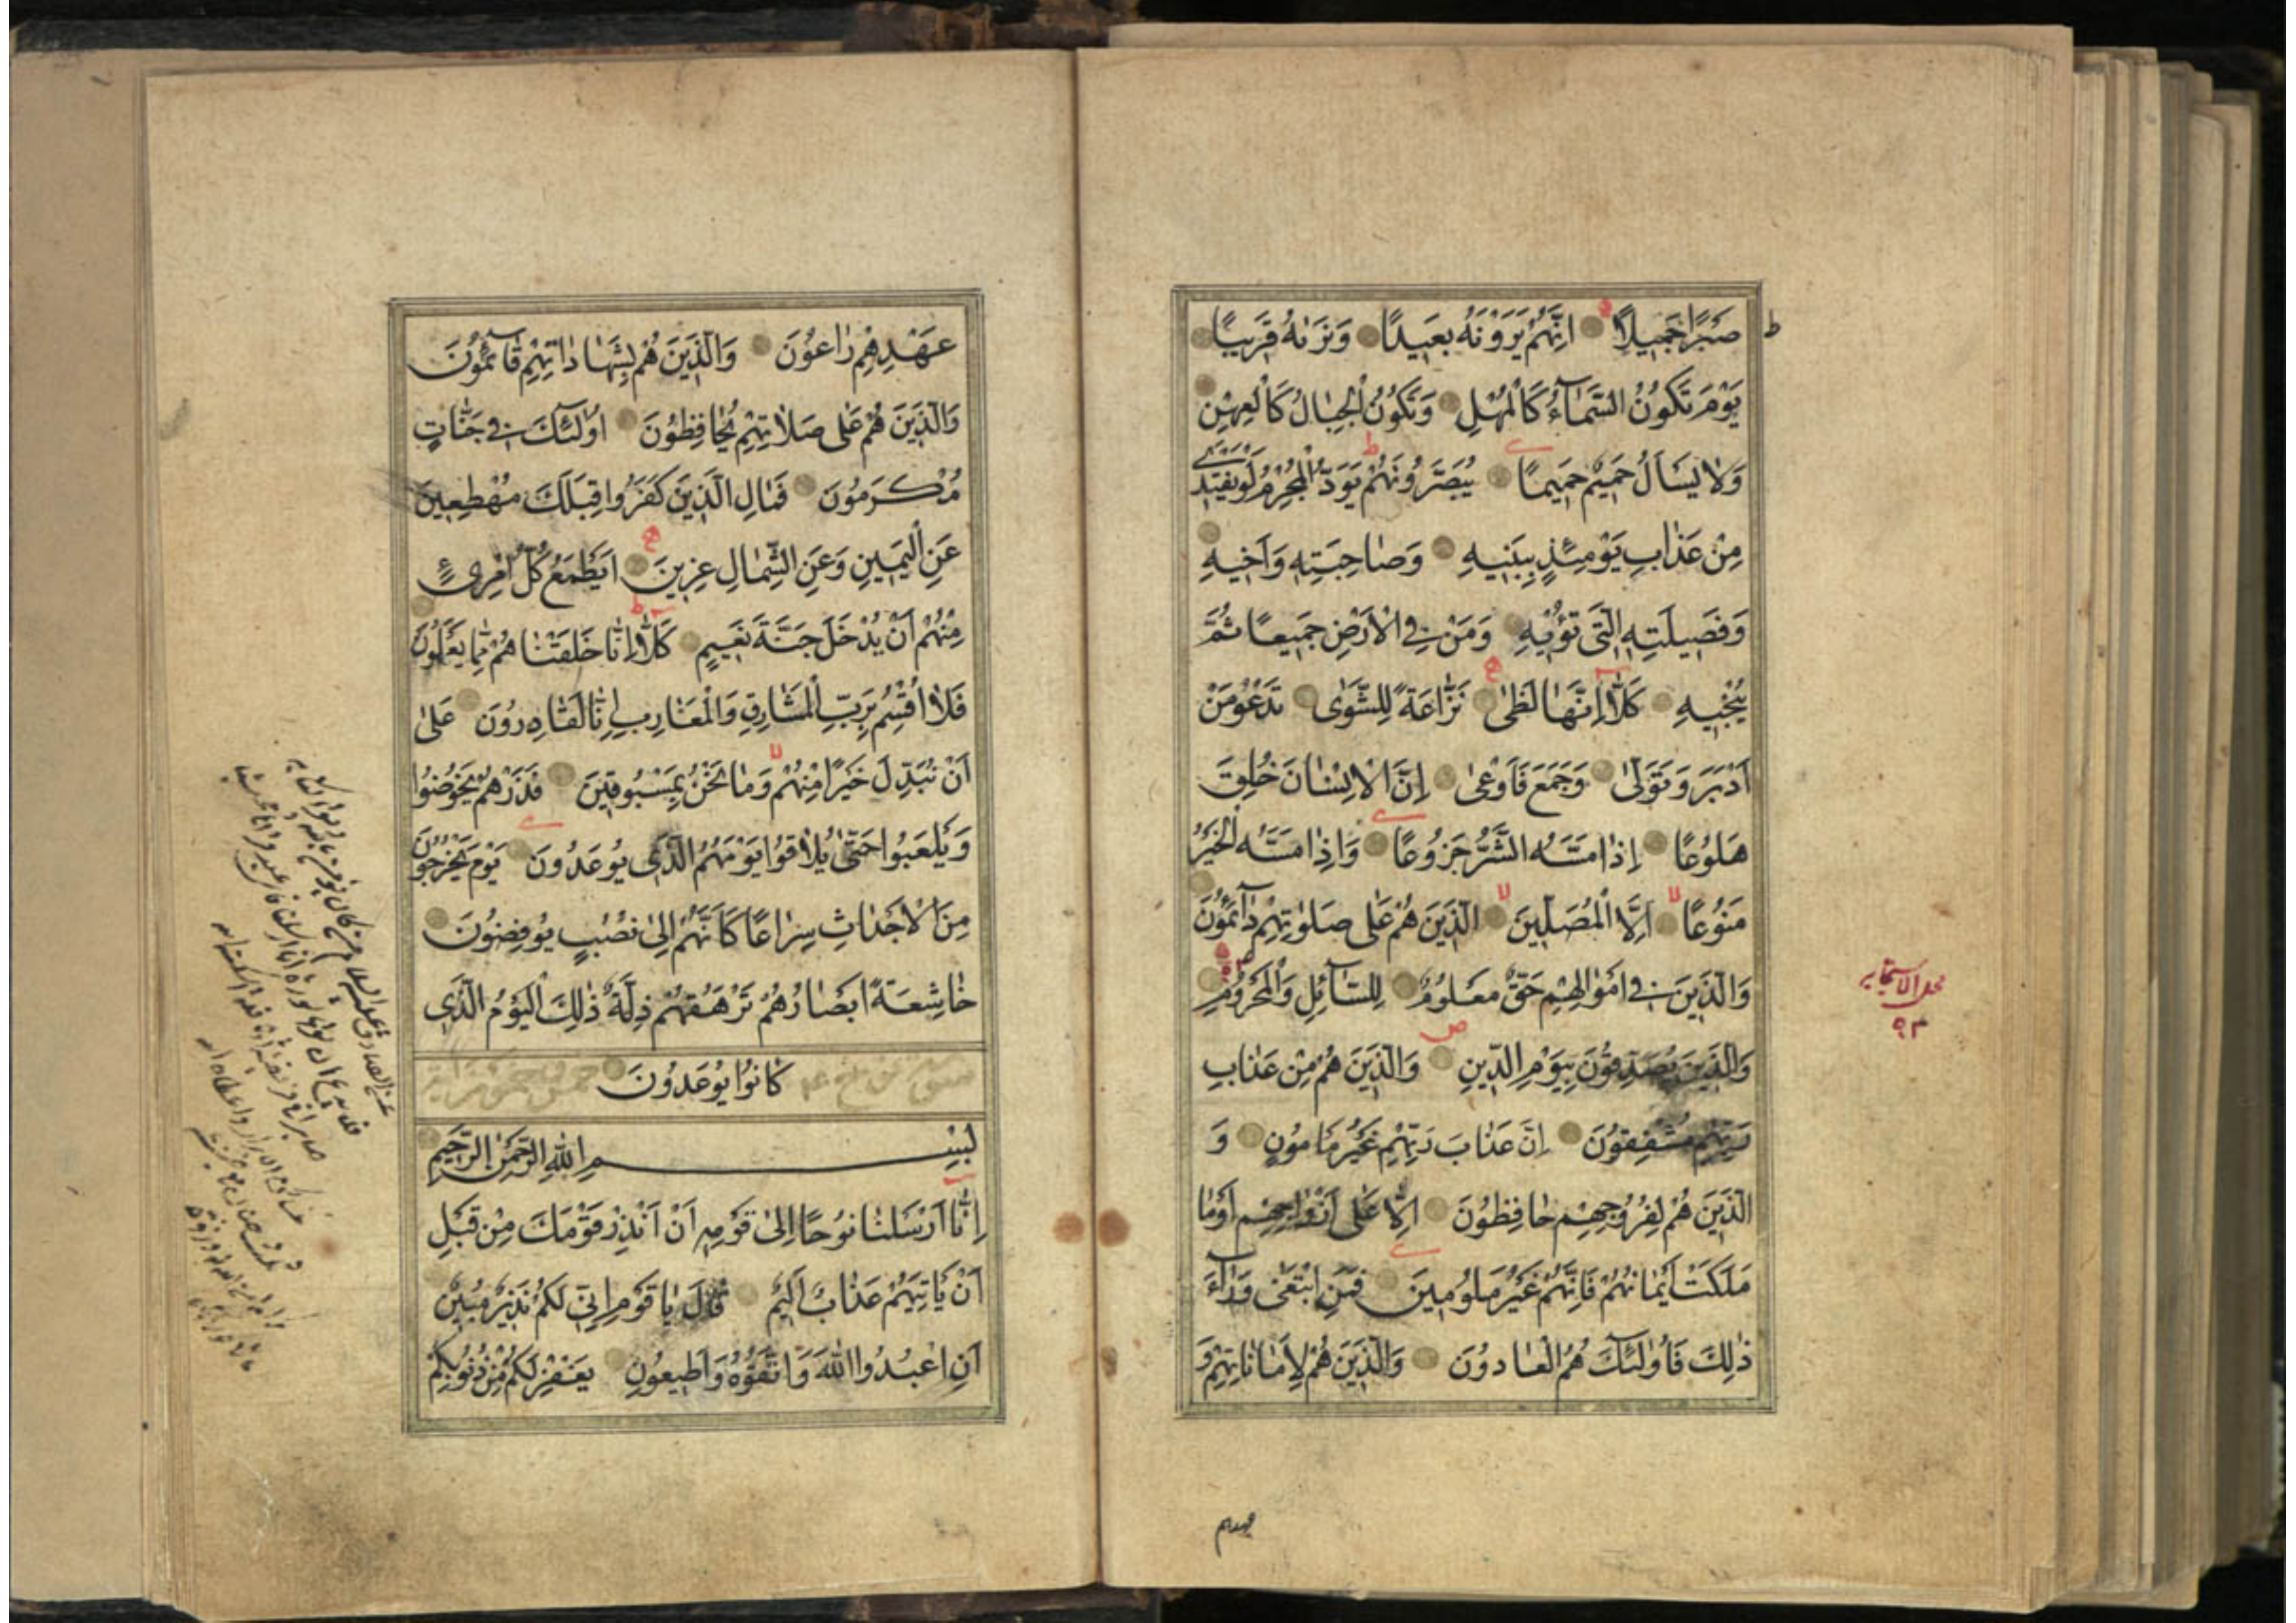 صَبْرًا جَمِيلًا اِنَّهُمْ يَرَوْنَهُ بَعِيدًا وَنَرٰيهُ قَرِيبًا
يَوْمَ تَكُونُ السَّمَآءُ كَالْمُهْلِ وَتَكُونُ الْجِبَالُ كَالْعِهْنِ
وَلَا يَسْاَلُ حَمِيمٌ حَمِيمًا يُبَصَّرُونَهُمْ يَوَدُّ الْمُجْرِمُ لَوْ يَفْتَدِي
مِنْ عَذَابِ يَوْمَئِذٍ بِبَنِيهِ وَصَاحِبَتِهِ وَاَخِيهِ
وَفَصِيلَتِهِ الَّتِي تُؤْيهِ وَمَنْ فِي الْاَرْضِ جَمِيعًا ثُمَّ
يُنْجِيهِ كَلَّا اِنَّهَا لَظٰى نَزَّاعَةً لِلشَّوٰى تَدْعُو مَنْ
اَدْبَرَ وَتَوَلّٰى وَجَمَعَ فَاَوْعٰى اِنَّ الْاِنْسَانَ خُلِقَ
هَلُوعًا اِذَا مَسَّهُ الشَّرُّ جَزُوعًا وَاِذَا مَسَّهُ الْخَيْرُ
مَنُوعًا اِلَّا الْمُصَلِّينَ الَّذِينَ هُمْ عَلٰى صَلٰوتِهِمْ دَآئِمُونَ
وَالَّذِينَ فِي اَمْوَالِهِمْ حَقٌّ مَعْلُومٌ لِلسَّآئِلِ وَالْمَحْرُومِ
وَالَّذِينَ يُصَدِّقُونَ بِيَوْمِ الدِّينِ وَالَّذِينَ هُمْ مِنْ عَذَابِ
رَبِّهِمْ مُشْفِقُونَ اِنَّ عَذَابَ رَبِّهِمْ غَيْرُ مَاْمُونٍ وَ
الَّذِينَ هُمْ لِفُرُوجِهِمْ حَافِظُونَ اِلَّا عَلٰى اَزْوَاجِهِمْ اَوْ مَا
مَلَكَتْ اَيْمَانُهُمْ فَاِنَّهُمْ غَيْرُ مَلُومِينَ فَمَنِ ابْتَغٰى وَرَآءَ
ذٰلِكَ فَاُولٰئِكَ هُمُ الْعَادُونَ وَالَّذِينَ هُمْ لِاَمَانَاتِهِمْ وَ
عَهْدِهِمْ رَاعُونَ وَالَّذِينَ هُمْ بِشَهَادَاتِهِمْ قَآئِمُونَ
وَالَّذِينَ هُمْ عَلٰى صَلَاتِهِمْ يُحَافِظُونَ اُولٰئِكَ فِي جَنَّاتٍ
مُكْرَمُونَ فَمَالِ الَّذِينَ كَفَرُوا قِبَلَكَ مُهْطِعِينَ
عَنِ الْيَمِينِ وَعَنِ الشِّمَالِ عِزِينَ اَيَطْمَعُ كُلُّ امْرِئٍ
مِنْهُمْ اَنْ يُدْخَلَ جَنَّةَ نَعِيمٍ كَلَّا اِنَّا خَلَقْنَاهُمْ مِمَّا يَعْلَمُونَ
فَلَا اُقْسِمُ بِرَبِّ الْمَشَارِقِ وَالْمَغَارِبِ اِنَّا لَقَادِرُونَ عَلٰى
اَنْ نُبَدِّلَ خَيْرًا مِنْهُمْ وَمَا نَحْنُ بِمَسْبُوقِينَ فَذَرْهُمْ يَخُوضُوا
وَيَلْعَبُوا حَتّٰى يُلَاقُوا يَوْمَهُمُ الَّذِي يُوعَدُونَ يَوْمَ يَخْرُجُونَ
مِنَ الْاَجْدَاثِ سِرَاعًا كَاَنَّهُمْ اِلٰى نُصُبٍ يُوفِضُونَ
خَاشِعَةً اَبْصَارُهُمْ تَرْهَقُهُمْ ذِلَّةٌ ذٰلِكَ الْيَوْمُ الَّذِي
كَانُوا يُوعَدُونَ
بِسْمِ اللّٰهِ الرَّحْمٰنِ الرَّحِيمِ
اِنَّا اَرْسَلْنَا نُوحًا اِلٰى قَوْمِهِ اَنْ اَنْذِرْ قَوْمَكَ مِنْ قَبْلِ
اَنْ يَاْتِيَهُمْ عَذَابٌ اَلِيمٌ قَالَ يَا قَوْمِ اِنِّي لَكُمْ نَذِيرٌ مُبِينٌ
اَنِ اعْبُدُوا اللّٰهَ وَاتَّقُوهُ وَاَطِيعُونِ يَغْفِرْ لَكُمْ مِنْ ذُنُوبِكُمْ